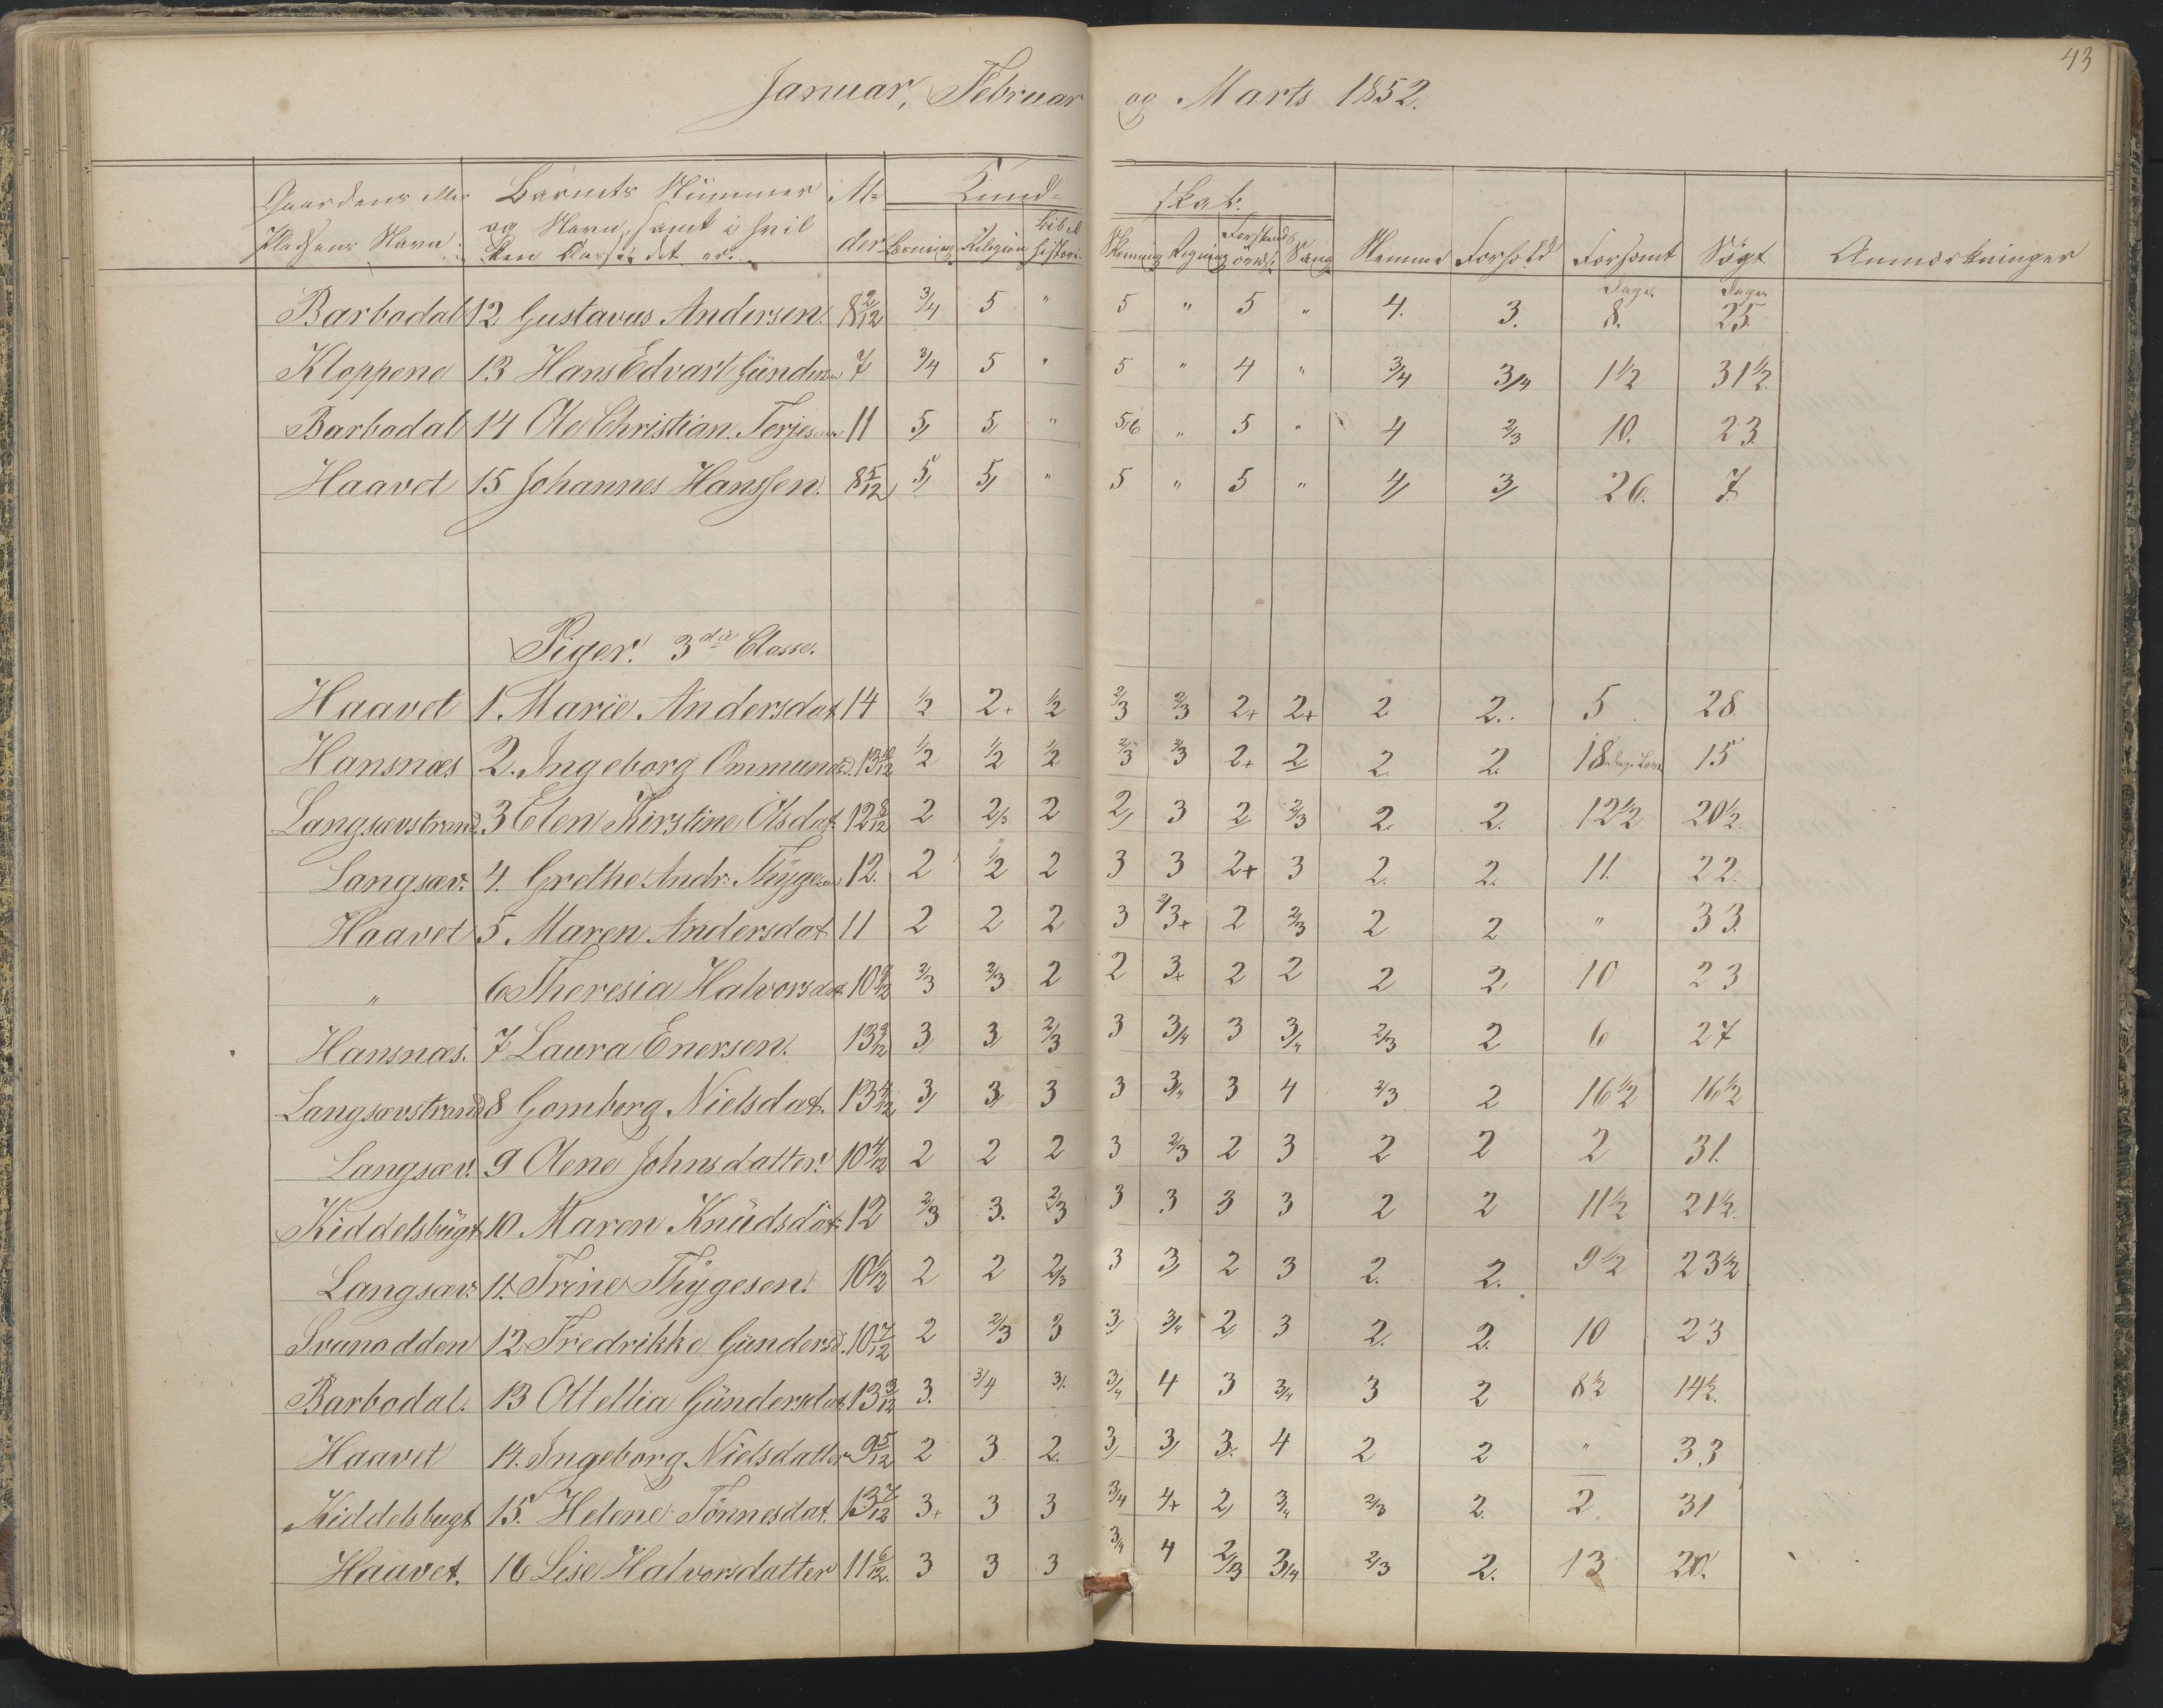 43
Januar, Februar og Marts 1852.
Gaardens eller Pladsens Navn. Barnets Nummer og Navn, samt i hvilken Klasse det er. Alder Kundskab. Læsning Religion Bibelhistorie Skrivning Regning Forstandsøvelse Sang Nemme Forhold Forsømt Søgt Anmærkninger
Dage Dage
Barbodal 12 Gustavus Andersen. 8 2/12 3/4 5 " 5 " 5 " 4. 3. 8. 25.
Kloppene 13 Hans Edvart Gündersen 7 3/4 5 " 5 " 4 " 3/4 3/4 1 1/2 31 1/2
Barbodal 14 Ole Christian Terjesen 11 5, 5, " 5/6 " 5 " 4 2/3 10. 23.
Haavet 15 Johannes Hanssen. 8 5/12 5, 5, " 5 " 5 " 4, 3, 26. 7.
Piger. 3die Classe.
Haavet 1. Marie Andersdat 14 1/2 2+ 1/2 2/3 2/3 2+ 2+ 2 2. 5 28
Hansnæs 2. Ingeborg Ommundsd. 13 10/12 1/2 1/2 1/2 2/3 2/3 2+ 2 2. 2. 18 15
Langsævstrand. 3 Elen Kirstine Olsdat. 12 8/12 2 2/3 2 2, 3 2 2/3 2. 2. 12 1/2 20 1/2
Langsæv. 4. Grethe Andr. Thygesen 12. 2 1/2 2 3 3 2+ 3 2. 2. 11. 22.
Haavet 5. Maren Andersdat 11 2 2 2 3 2/3+ 2 2/3 2 2 " 33.
" 6 Theresia Halvorsdat 10 9/12 2/3 2/3 2 2 3+ 2 2 2 2 10 23
Hansnæs. 7 Laura Enersen. 13 9/12 3, 3, 2/3 3 3/4 3 3/4 2/3 2 6 27
Langsævstrand 8 Gomborg Nielsdat. 13 4/12 3, 3, 3 3 3/4 3 4 2/3 2 16 1/2 16 1/2
Langsæv. 9 Olene Johnsdatter. 10 4/12 2 2 2 3 2/3 2 3 2 2 2 31.
Kiddelsbügt 10 Maren Knüdsdat: 12 2/3 3. 2/3 3 3 3 3 2 2 11 1/2 21 1/2.
Langsæv: 11. Trine Thygesen. 10 1/12 2 2 2/3 3 3, 2 3 2. 2. 9 1/2 23 1/2
Svenodden 12 Fredrikke Gündersd. 10 7/12 2 2/3 3 3, 3/4 2, 3 2. 2. 10 23
Barbodal. 13 Ottellia Gündersdat 13 3/12 3. 3/4 3. 3/4 4 3 3/4 3 2 8 1/2 14 1/2.
Haavet 14. Ingeborg Nielsdatter 9 5/12 2 3 2. 3, 3, 3. 4 2 2 " 33
Kiddelsbugt 15. Helene Tönnesdat. 13 7/12 3+ 3 3 3/4 4+ 2, 3/4 2/3 2. 2 31
Haavet. 16 Lise Halvorsdatter 11 6/12. 3 3 3 3/4 4 2/3 3/4 2/3 2. 13 20.